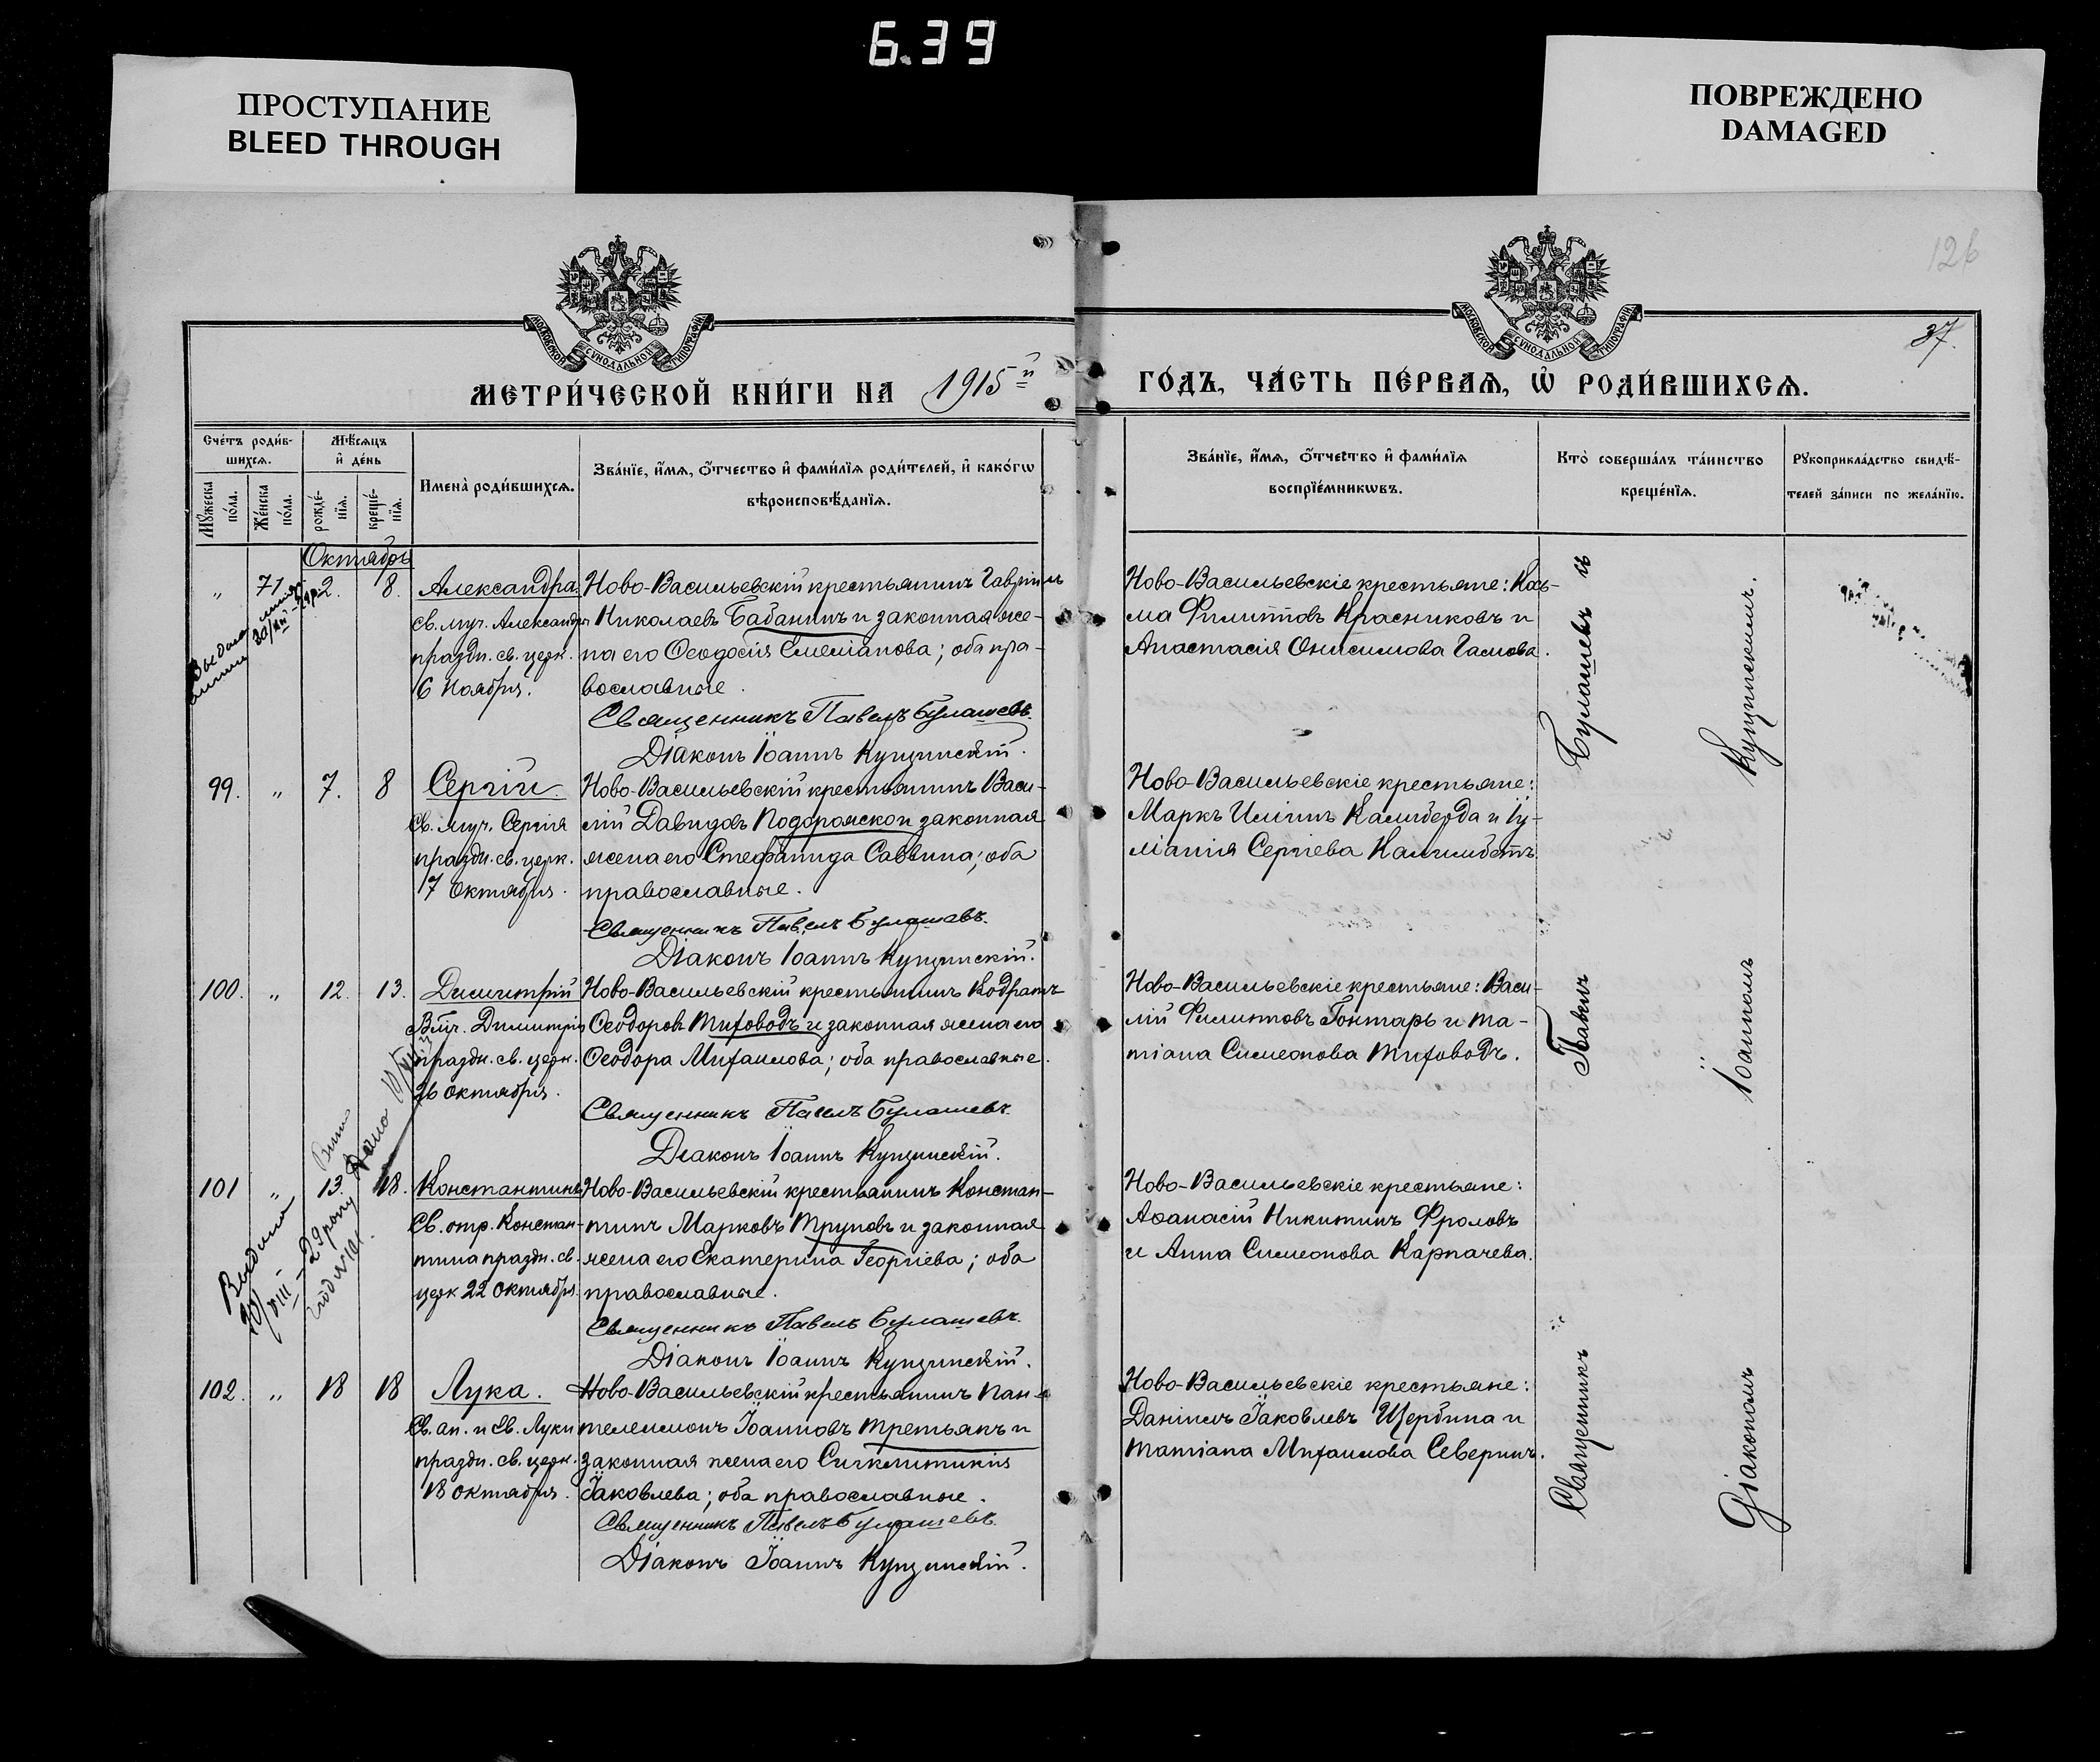 6.39
ПРОСТУПАНИЕ
BLEED THROUGH
ПОВРЕЖДЕНО
DAMAGED
126
37.
МОСКОВСКОЙ СѴНОДАЛЬНОЙ ТИПОГРАФІИ
МОСКОВСКОЙ СѴНОДАЛЬНОЙ ТИПОГРАФІИ
МЕТРИ́ЧЕСКОЙ КНИ́ГИ НА 1915й
ГО́ДЪ, ЧА́СТЬ ПЕ́РВАѦ, Ѡ҆ РОДИ́ВШИХСѦ.
Сче́тъ роди́в-
шихсѧ.
Мꙋ́жеска по́ла.
Же́нска по́ла.
Мѣ́сѧцъ
и҆ де́нь
рожде́-
нїѧ.
креще́-
нїѧ.
И҆мена̀ роди́вшихсѧ.
Зва́нїе, и҆́мѧ, ѻ҆́тчество и҆ фами́лїѧ роди́телей, и҆ како́гѡ
вѣроисповѣ́данїѧ.
Зва́нїе, и҆́мѧ, ѻ҆́тчество и҆ фами́лїѧ
воспрїе́мникѡвъ.
Кто̀ соверша́лъ та́инство
креще́нїѧ.
Рꙋкоприкла́дство свидѣ́-
телей за́писи по жела́нїю.
Октябрь
„ 71 2. 8. Александра.
св. муч. Александры
праздн. св. церк.
6 Ноября.
Ново-Васильевскій крестьянинъ Гавріилъ
Николаевъ Бабанинъ и законная же-
на его Ѳеодосія Емеліанова; оба пра-
вославные.
Священникъ Павелъ Булашевъ.
Діаконъ Іоаннъ Кущинскій.
Ново-Васильевскіе крестьяне: Кось-
ма Филипповъ Красниковъ и
Анастасія Онисимова Гамова.
99. „ 7. 8 Сергій
Св. муч. Сергія
праздн. св. церк.
7 Октября.
Ново-Васильевскій крестьянинъ Васи-
лій Давидовъ Подорожскои законная
жена его Стефанида Саввина; оба
православные.
Священникъ Павелъ Булашевъ.
Діаконъ Іоаннъ Кущинскій.
Ново-Васильевскіе крестьяне:
Маркъ Иліинъ Калиберда и Іу-
ліанія Сергіева
100. „ 12. 13. Димитрій
Вмч. Димитрія
праздн. св. церк.
26 Октября.
Ново-Васильевскій крестьянинъ Кодратъ
Ѳеодоровъ Тиховодъ и законная жена его
Ѳеодора Михаилова; оба православные.
Священникъ Павелъ Булашевъ.
Діаконъ Іоаннъ Кущинскій.
Ново-Васильевскіе крестьяне: Васи-
лій Филипповъ Гонтарь и Та-
тіана Симеонова Тиховодъ.
101 „ 13. 18. Константинъ
Св. отр. Констан-
тина праздн. св.
церк. 22 Октября.
Ново-Васильевскій крестьянинъ Констан-
тинъ Марковъ Труновъ и законная
жена его Екатерина Георгіева; оба
православные.
Священникъ Павелъ Булашевъ.
Діаконъ Іоаннъ Кущинскій.
Ново-Васильевскіе крестьяне:
Аѳанасій Никитинъ Фроловъ
и Анна Симеонова Карпачева.
102. „ 18 18 Лука.
Св. ап. и Ев. Луки
праздн. св. церк.
18 Октября.
Ново-Васильевскій крестьянинъ Пан-
телеимонъ Іоанновъ Третьякъ и
законная жена его Сигклитикія
Іаковлева; оба православные.
Священникъ Павелъ Булашевъ.
Діаконъ Іоаннъ Кущинскій.
Ново-Васильевскіе крестьяне:
Даніилъ Іаковлевъ Щербина и
Татіана Михаилова Северинъ.
Священникъ Павелъ Булашевъ съ
Діакономъ Іоанномъ Кущинскимъ.